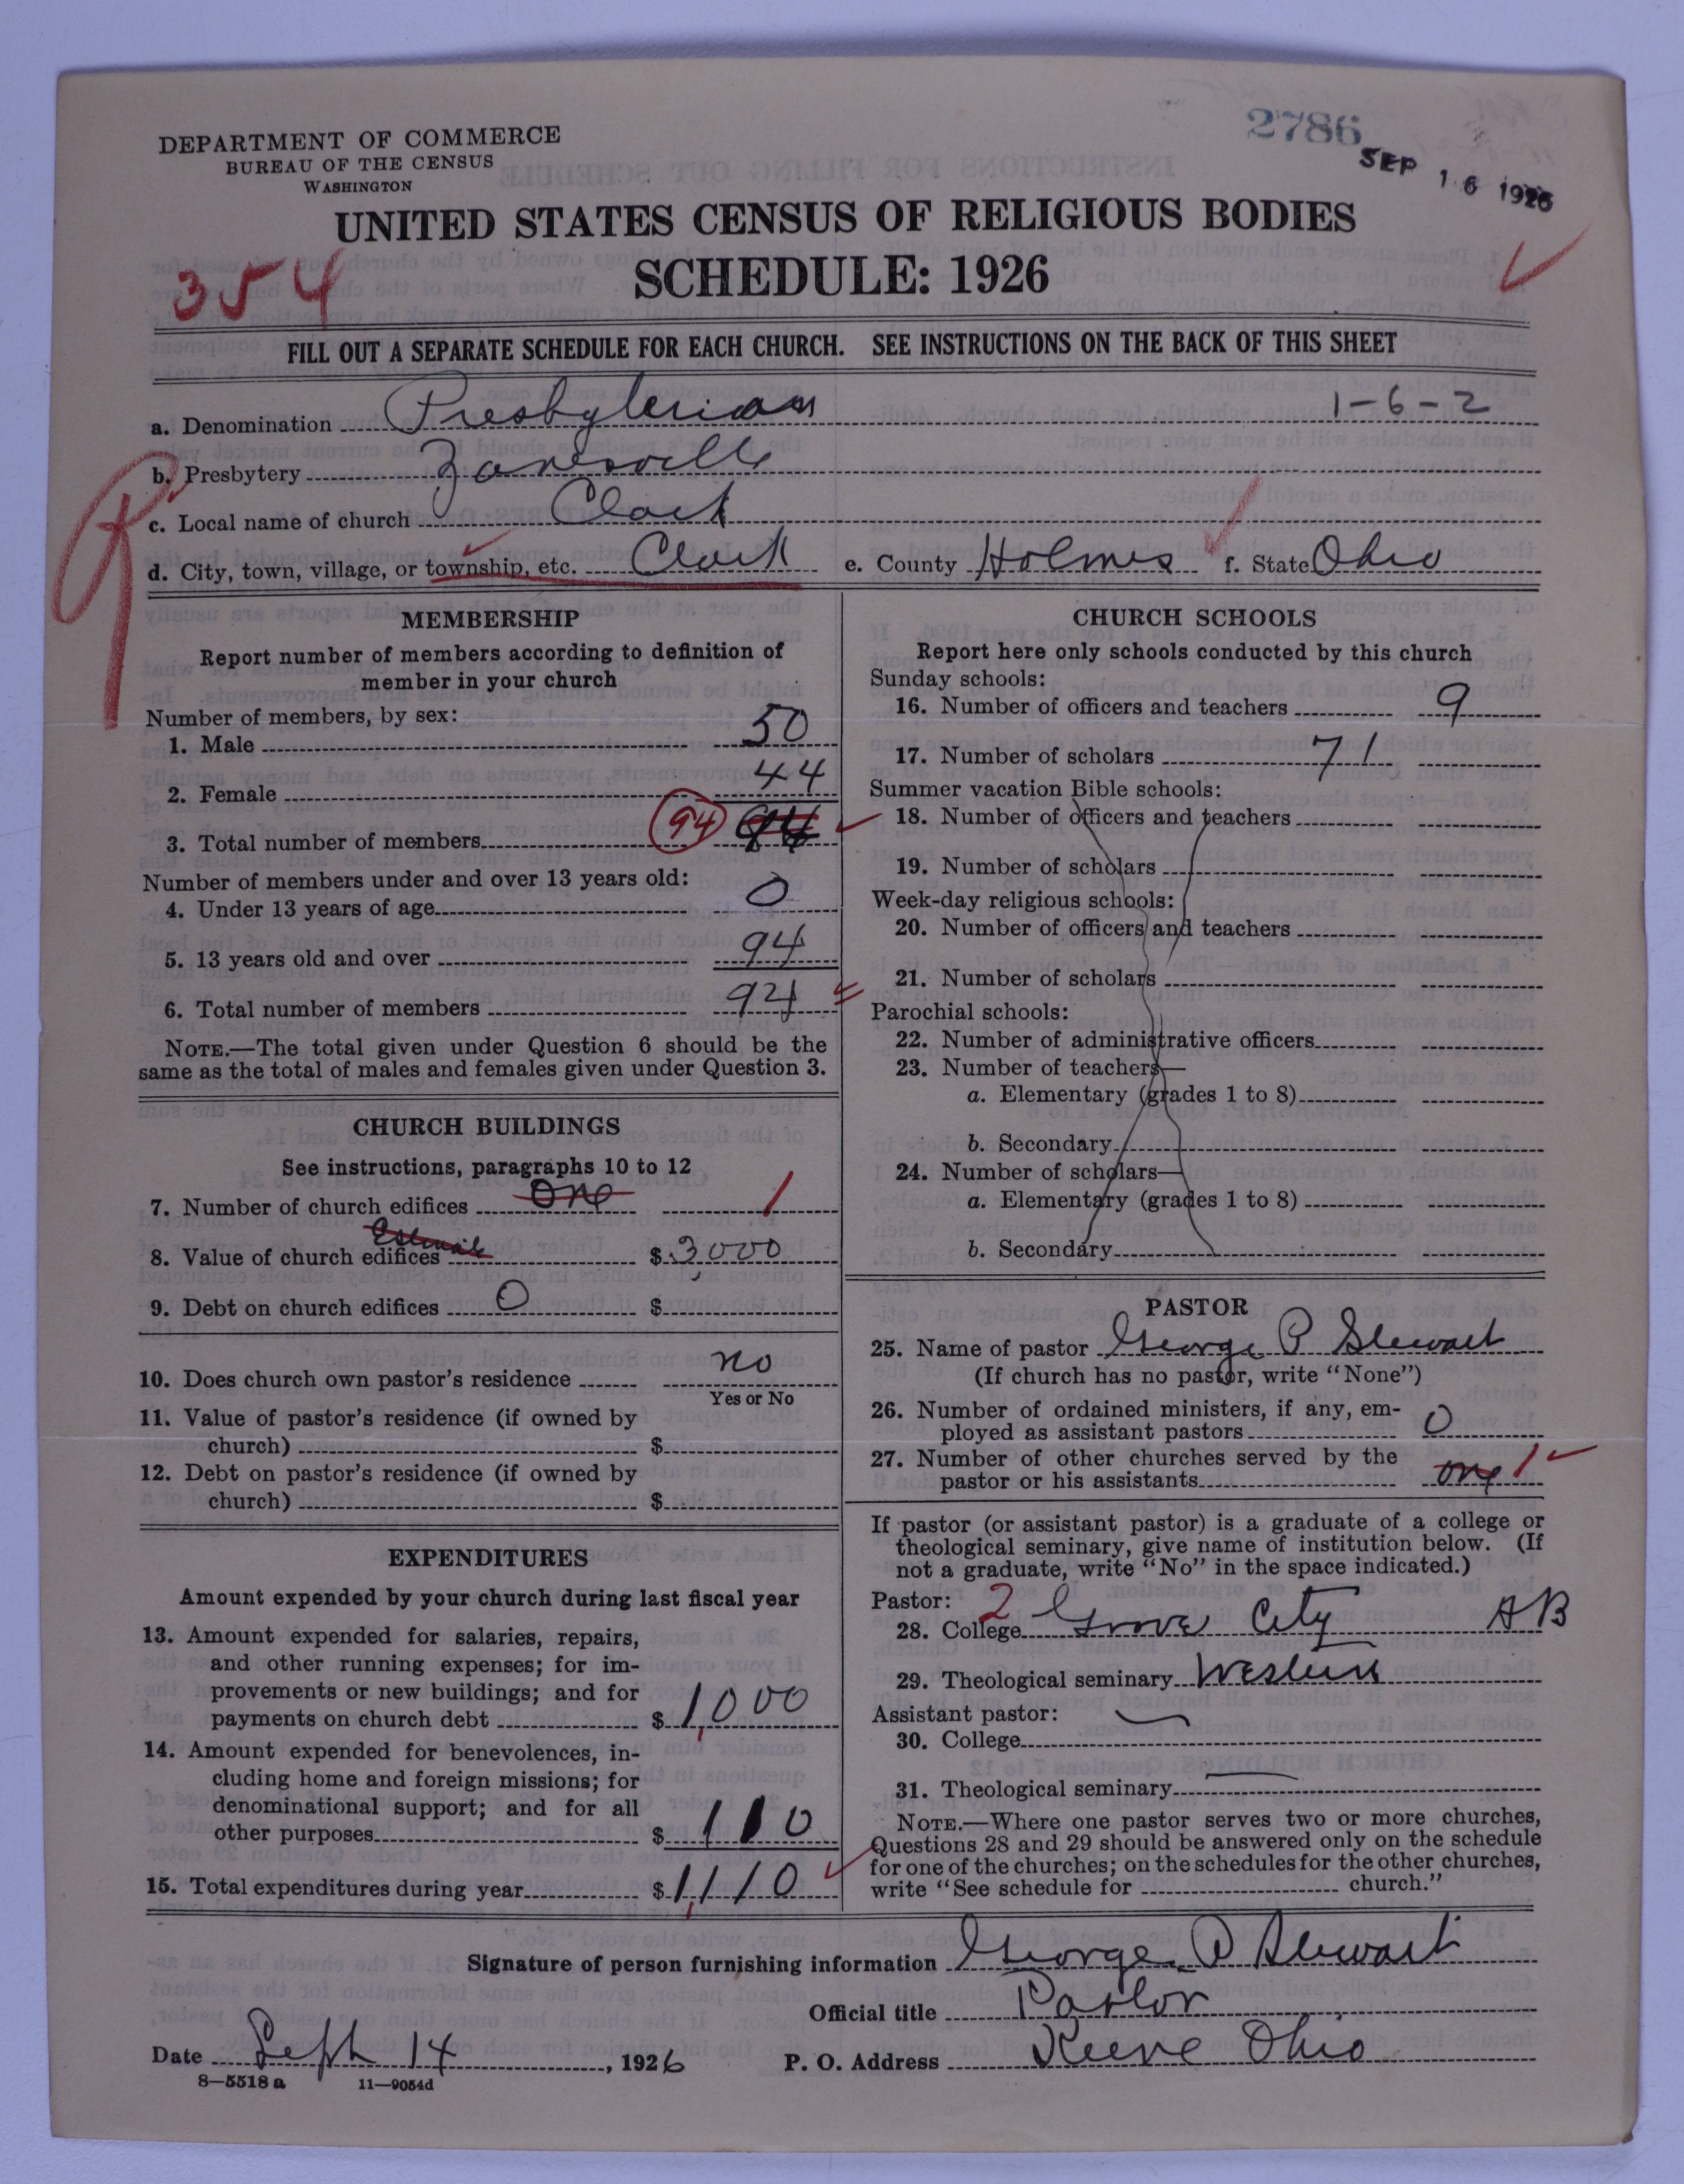 2786
SEP 16 1926
DEPARTMENT OF COMMERCE
BUREAU OF THE CENSUS
WASHINGTON
UNITED STATES CENSUS OF RELIGIOUS BODIES
SCHEDULE: 1926
354
FILL OUT A SEPARATE SCHEDULE FOR EACH CHURCH. SEE INSTRUCTIONS ON THE BACK OF THIS SHEET
a. Denomination Presbyterian 1-6-2
b. Presbytery Zanesville
c. Local name of church Clark
d. City, town, village, or township, etc. Clark e. County Holmes f. State Ohio
MEMBERSHIP
Report number of members according to definition of
member in your church
Number of members, by sex:
1. Male 50
2. Female 44
3. Total number of members 94
Number of members under and over 13 years old:
4. Under 13 years of age 0
5. 13 years old and over 94
6. Total number of members 94
NOTE.—The total given under Question 6 should be the
same as the total of males and females given under Question 3.
CHURCH BUILDINGS
See instructions, paragraphs 10 to 12
7. Number of church edifices One 1
Estimate
8. Value of church edifices $ 3,000
9. Debt on church edifices 0 $
10. Does church own pastor's residence no
Yes or No
11. Value of pastor's residence (if owned by
church) $
12. Debt on pastor's residence (if owned by
church) $
EXPENDITURES
Amount expended by your church during last fiscal year
13. Amount expended for salaries, repairs,
and other running expenses; for im-
provements or new buildings; and for
payments on church debt $ 1,000
14. Amount expended for benevolences, in-
cluding home and foreign missions; for
denominational support; and for all
other purposes $ 110
15. Total expenditures during year $ 1,110
CHURCH SCHOOLS
Report here only schools conducted by this church
Sunday schools:
16. Number of officers and teachers 9
17. Number of scholars 71
Summer vacation Bible schools:
18. Number of officers and teachers
19. Number of scholars
Week-day religious schools:
20. Number of officers and teachers
21. Number of scholars
Parochial schools:
22. Number of administrative officers
23. Number of teachers—
a. Elementary (grades 1 to 8)
b. Secondary
24. Number of scholars—
a. Elementary (grades 1 to 8)
b. Secondary
PASTOR
25. Name of pastor George P Stewart
(If church has no pastor, write "None")
26. Number of ordained ministers, if any, em-
ployed as assistant pastors 0
27. Number of other churches served by the
pastor or his assistants one 1
If pastor (or assistant pastor) is a graduate of a college or
theological seminary, give name of institution below. (If
not a graduate, write "No" in the space indicated.)
Pastor: 2
28. College Grove City AB
29. Theological seminary Western
Assistant pastor:
30. College
31. Theological seminary
NOTE.—Where one pastor serves two or more churches,
Questions 28 and 29 should be answered only on the schedule
for one of the churches; on the schedules for the other churches,
write "See schedule for church."
Signature of person furnishing information George P Stewart
Official title Pastor
Date Sept 14, 1926 P. O. Address Keene Ohio
8—5518 a 11—9054d